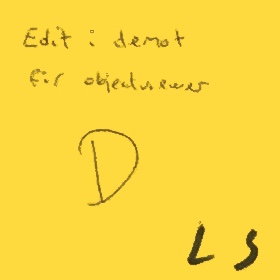 Edit i demot
för objectviewer
D
L S